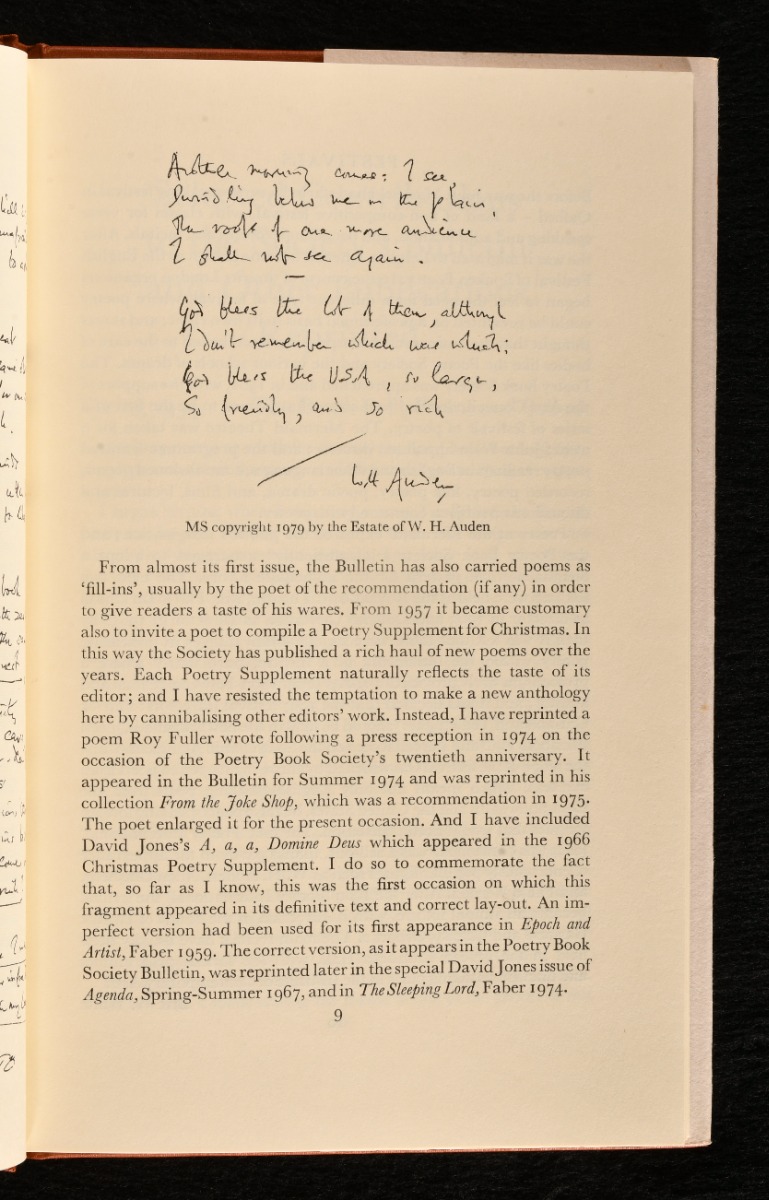 Another morning comes: I see,
Dwindling below me on the plain,
The roofs of one more audience
I shall not see again.
God bless the lot of them, although
I don't remember which was which;
God bless the U.S.A, so large,
So friendly, and so rich
W H Auden
MS copyright 1979 by the Estate of W. H. Auden
From almost its first issue, the Bulletin has also carried poems as
‘fill-ins’, usually by the poet of the recommendation (if any) in order
to give readers a taste of his wares. From 1957 it became customary
also to invite a poet to compile a Poetry Supplement for Christmas. In
this way the Society has published a rich haul of new poems over the
years. Each Poetry Supplement naturally reflects the taste of its
editor; and I have resisted the temptation to make a new anthology
here by cannibalising other editors’ work. Instead, I have reprinted a
poem Roy Fuller wrote following a press reception in 1974 on the
occasion of the Poetry Book Society’s twentieth anniversary. It
appeared in the Bulletin for Summer 1974 and was reprinted in his
collection From the Joke Shop, which was a recommendation in 1975.
The poet enlarged it for the present occasion. And I have included
David Jones’s A, a, a, Domine Deus which appeared in the 1966
Christmas Poetry Supplement. I do so to commemorate the fact
that, so far as I know, this was the first occasion on which this
fragment appeared in its definitive text and correct lay-out. An im-
perfect version had been used for its first appearance in Epoch and
Artist, Faber 1959. The correct version, as it appears in the Poetry Book
Society Bulletin, was reprinted later in the special David Jones issue of
Agenda, Spring-Summer 1967, and in The Sleeping Lord, Faber 1974.
9